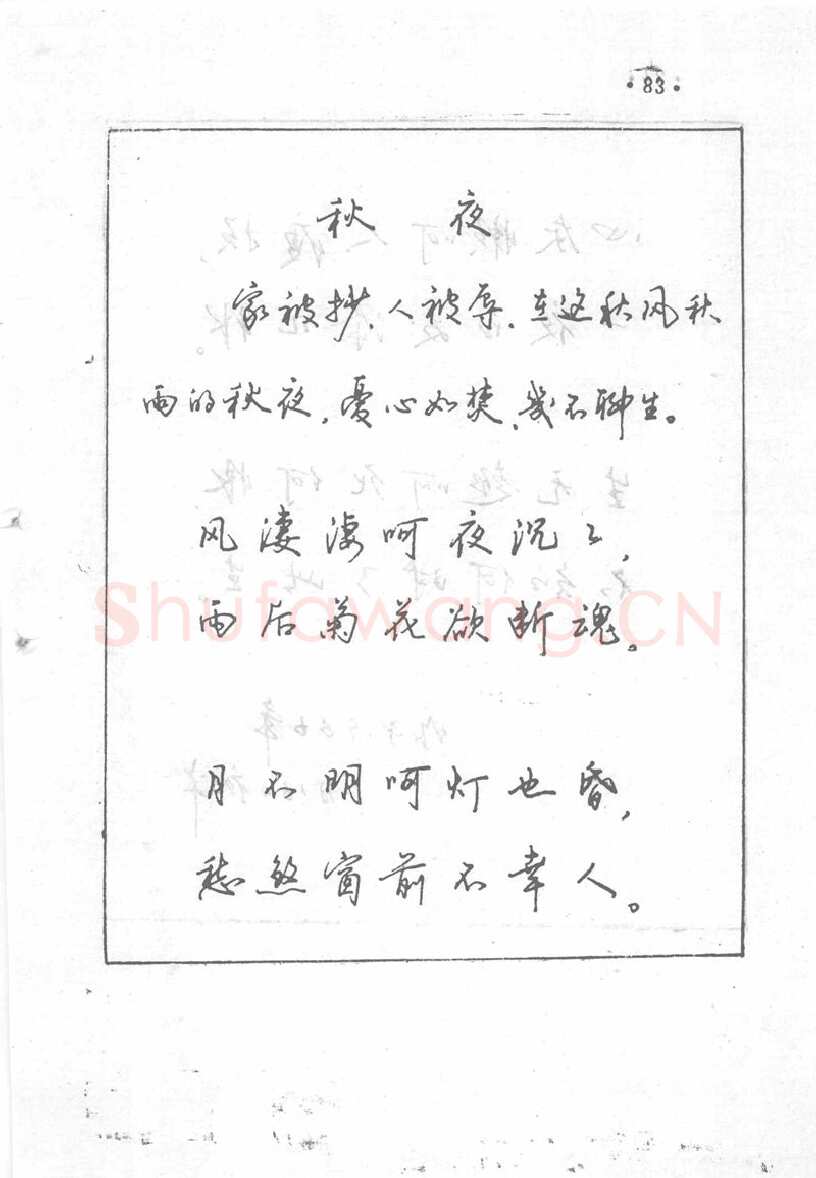 ·83·
秋 夜
家被抄、人被辱。在这秋风秋
雨的秋夜,憂心如焚,幾不聊生。
风凄凄呵夜沉沉,
雨后菊花欲断魂。
Shufawang.CN
月不明呵灯也昏,
愁煞窗前不幸人。